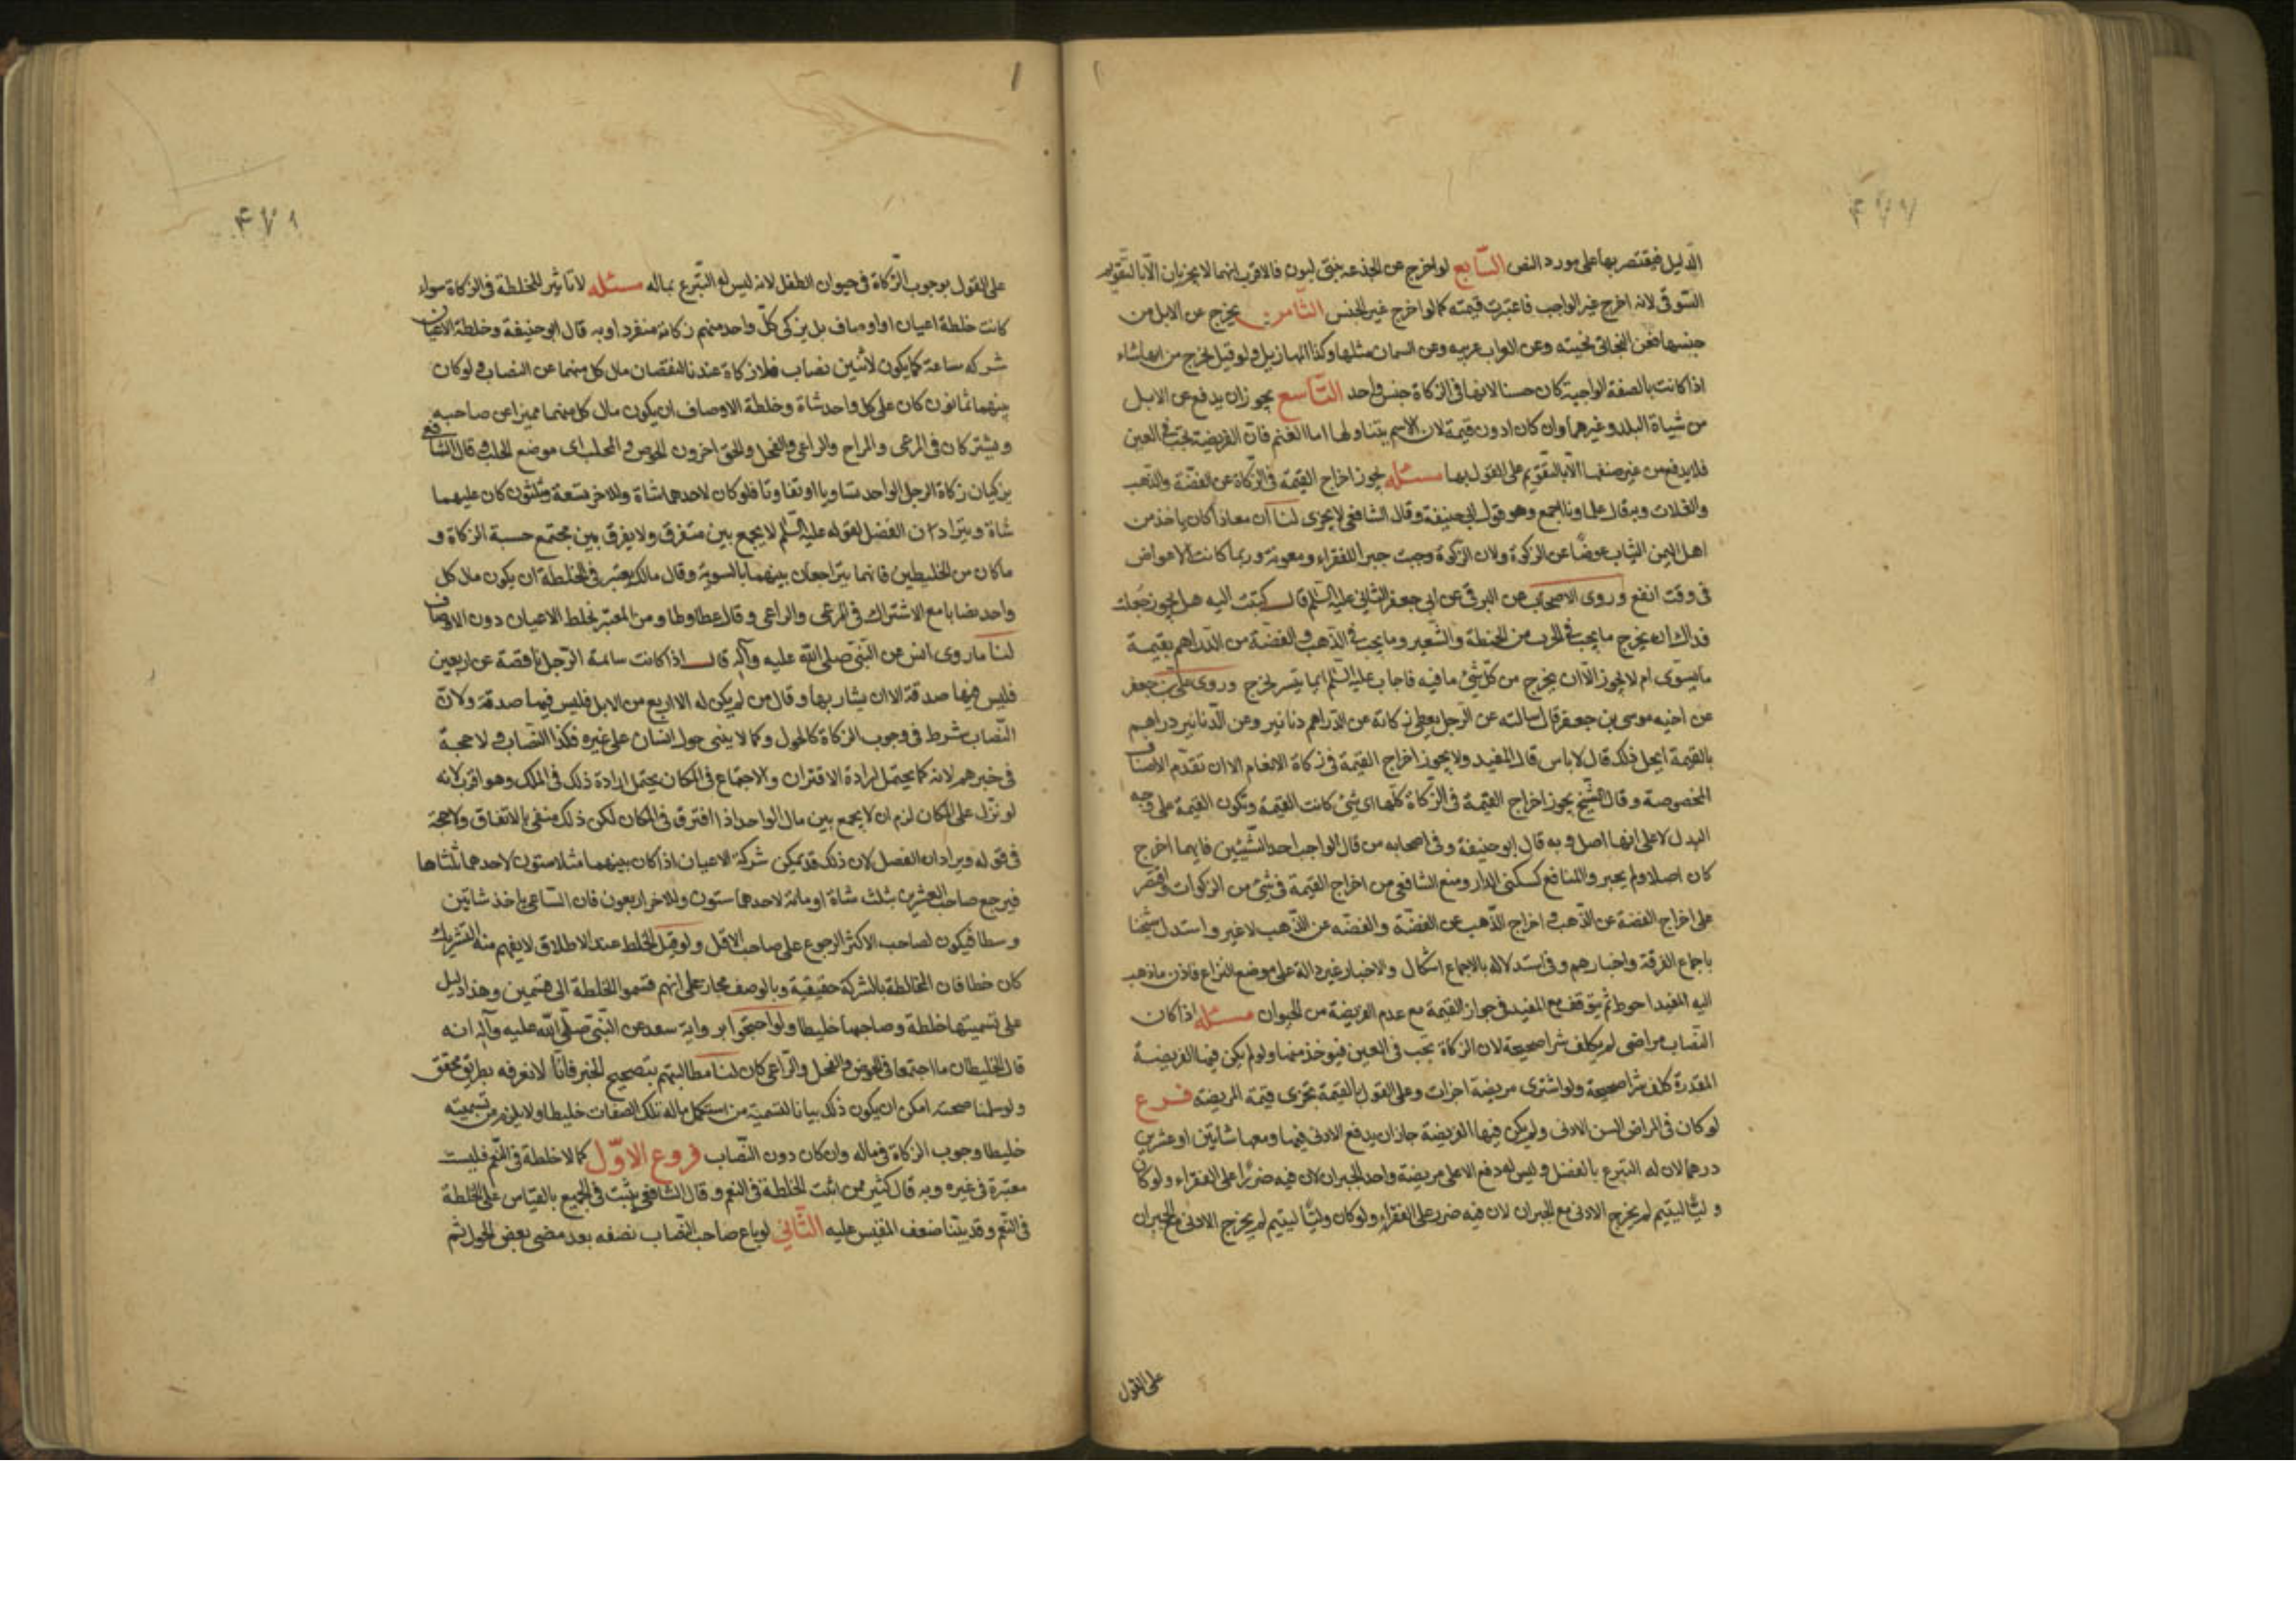 الدليل فيقتصر بها على مورد النص السابع لو اخرج عن الجذعه بنتى لبون فالاقرب انهما لا يجزيان الا بالتقويم
السوقى لانه اخرج غير الواجب فاعتبرت قيمته كما لو اخرج غير الجنس الثامن يخرج عن الابل من
جنسها فعن البخاتى بخيته وعن العراب عربيه وعن السمان مثلها وكذا المهازيل ولو قيل يخرج من ايها شاء
اذا كانت بالصفة الواجبة كان حسنا لانها فى الزكاة جنس واحد التاسع يجوز ان يدفع عن الابل
من شياة البلد وغيرها وان كان ادون قيمة لان الاسم يتناولها اما الغنم فان الفريضة تجب فى العين
فلا يدفع من غير صنفها الا بالتقويم على القول بها مسئله يجوز اخراج القيمة فى الزكاة عن الفضة والذهب
والغلات وبه قال علماونا اجمع وهو قول ابى حنيفة وقال الشافعى لا يجزى لنا ان معاذا كان ياخذ من
اهل اليمن الثياب عوضا عن الزكوة ولان الزكوة وجبت جبرا للفقراء ومعونة وربما كانت الاعواض
فى وقت انفع وروى الاصحاب عن البرقى عن ابى جعفر الثانى عليه السلم قال كتبت اليه هل يجوز جعلت
فداك ان يخرج ما يجب فى الحرث من الحنطة والشعير وما يجب فى الذهب والفضة من الدراهم بقيمة
ما يسوى ام لا يجوز الا ان يخرج من كل شئ ما فيه فاجاب عليه السلم ايما يتسر يخرج وروى على بن جعفر
عن اخيه موسى بن جعفر قال سالته عن الرجل يعطى زكاته عن الدراهم دنانير وعن الدنانير دراهم
بالقيمة ايحل ذلك قال لا باس قال المفيد ولا يجوز اخراج القيمة فى زكاة الانعام الا ان تقدم الاصناف
المخصوصة وقال الشيخ يجوز اخراج القيمة فى الزكاة كلها اى شئ كانت القيمة وتكون القيمة على وجه
البدل لا على انها اصل وبه قال ابو حنيفة وفى اصحابه من قال الواجب احد الشيئين فايهما اخرج
كان اصلا ولم يجبر والمنافع كسكنى الدار ومنع الشافعى من اخراج القيمة فى شئ من الزكوات واقتصر
على اخراج الفضة عن الذهب و اخراج الذهب عن الفضة والفضه عن الذهب لا غير واستدل شيخنا
باجماع الفرقة واخبارهم وفى استدلاله بالاجماع اشكال والاخبار غير دالة على موضع النزاع فاذن ما ذهب
اليه المفيد احوط ثم يتوقف مع المفيد فى جواز القيمة مع عدم الفريضة من الحيوان مسئله اذا كان
النصاب مراضى لم يكلف شرا صحيحة لان الزكاة تجب فى العين فيوخذ منها ولو لم يكن فيها الفريضة
المقدرة كلف شرا صحيحة ولو اشترى مريضة اجزات وعلى القول بالقيمة تجزى قيمة المريضة فرع
لو كان فى المراض السن الادنى ولم يكن فيها الفريضة جاز ان يدفع الادنى فيها ومعها شاتين او عشرين
درهما لان له التبرع بالفضل وليس له دفع الاعلى مريضة واخذ الجبران لان فيه ضررا على الفقراء ولو كان
وليا ليتيم لم يخرج الادنى مع الجبران لان فيه ضرر على الفقراء ولو كان وليا ليتيم لم يخرج الادنى مع الجبران
على القول
۴۷۱
على القول بوجوب الزكاة فى حيوان الطفل لانه ليس له التبرع بماله مسئله لا تاثير للخلطة فى الزكاة سواء
كانت خلطة اعيان او اوصاف بل يزكى كل واحد منهم زكاته منفردا وبه قال ابو حنيفة وخلطة الاعيان
شركه كما يكون لاثنين نصاب فلا زكاة عندنا لنقصان مال كل منهما عن النصاب ولو كان
بينهما ثمانون كان على كل واحد شاة وخلطة الاوصاف ان يكون مال كل منهما مميزا عن صاحبه
ويشتركان فى المرعى والمراح والراعى والفحل والحق اخرون الحوض و المحلب اى موضع الحلب و قال الشافعى
يزكيان زكاة الرجل الواحد تساويا او تفاوتا فلو كان لاحدهما شاة وللاخر تسعة وثلثون كان عليهما
شاة ويترادان الفضل لقوله عليه السلم لا يجمع بين متفرق ولا يفرق بين مجتمع حسبة الزكاة و
ما كان من الخليطين فانهما يتراجعان بينهما بالسوية وقال مالك يعتبر فى الخلطة ان يكون مال كل
واحد نصابا مع الاشتراك فى المرعى والراعى وقال عطا وطاوس المعتبر بخلط الاعيان دون الاوصاف
لنا ما روى انس عن النبى صلى الله عليه وآله قال اذا كانت سائمة الرجل ناقصة عن اربعين
فليس فيها صدقة الا ان يشاء ربها وقال من لم يكن له الا اربع من الابل فليس فيها صدقة ولان
النصاب شرط فى وجوب الزكاة كالحول وكما لا يبنى حول انسان على غيره فكذا النصاب و لا حجة
فى خبرهم لانه كما يحتمل ارادة الاقتران والاجتماع فى المكان يحتمل ارادة ذلك فى الملك وهو اقرب لانه
لو نزل على المكان لزم ان لا يجمع بين مال الواحد اذا افترق فى المكان لكن ذلك منفى بالاتفاق ولا حجة
فى قوله ويرادان الفضل لان ذلك قد يمكن شركة الاعيان اذا كان بينهما مثلا ستون لاحدهما ثلثاها
فيرجع صاحب العشرين بثلث شاة او مائة لاحدهما ستون وللاخر اربعون فان الساعى ياخذ شاتين
وسطا فيكون لصاحب الاكثر الرجوع على صاحب الاقل ولو قيل الخلط عند الاطلاق لا يفهم منه التشريك
كان خطا فان المخالطة بالشركة حقيقية وبالوصف مجاز على انهم قسموا الخلطة الى قسمين وهذا دليل
على تسميتها خلطة وصاحبها خليطا ولو احتجوا برواية سعد عن النبى صلى الله عليه وآله انه
قال الخليطان ما اجتمعا فى الحوض والفحل والراعى كان لنا مطالبتهم بتصحيح الخبر فانا لا نعرفه بطريق محقق
ولو سلمنا صحته امكن ان يكون ذلك بيانا لتسمية من استكمل ماله تلك الصفات خليطا ولا يلزم من تسميته
خليطا وجوب الزكاة فى ماله وان كان دون النصاب فروع الاول كما لا خلطة فى النعم فليست
معتبرة فى غيره وبه قال كثير ممن اثبت الخلطة فى النعم وقال الشافعى يثبت فى الجميع بالقياس على الخلطة
فى النعم وقد بينا ضعف المقيس عليه الثانى لو باع صاحب النصاب نصفه بعد مضى بعض الحول ثم